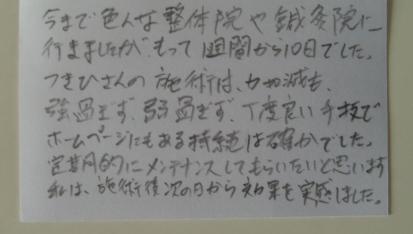 今まで色んな整体院や鍼灸院に
行きましたが、もって1週間から10日でした。
つきひさんの施術は、力加減も、
強過ぎず、弱過ぎず、丁度良い手技で
ホームページにもある持続は確かでした。
定期的にメンテナンスしてもらいたいと思います
私は、施術後次の日から効果を実感しました。